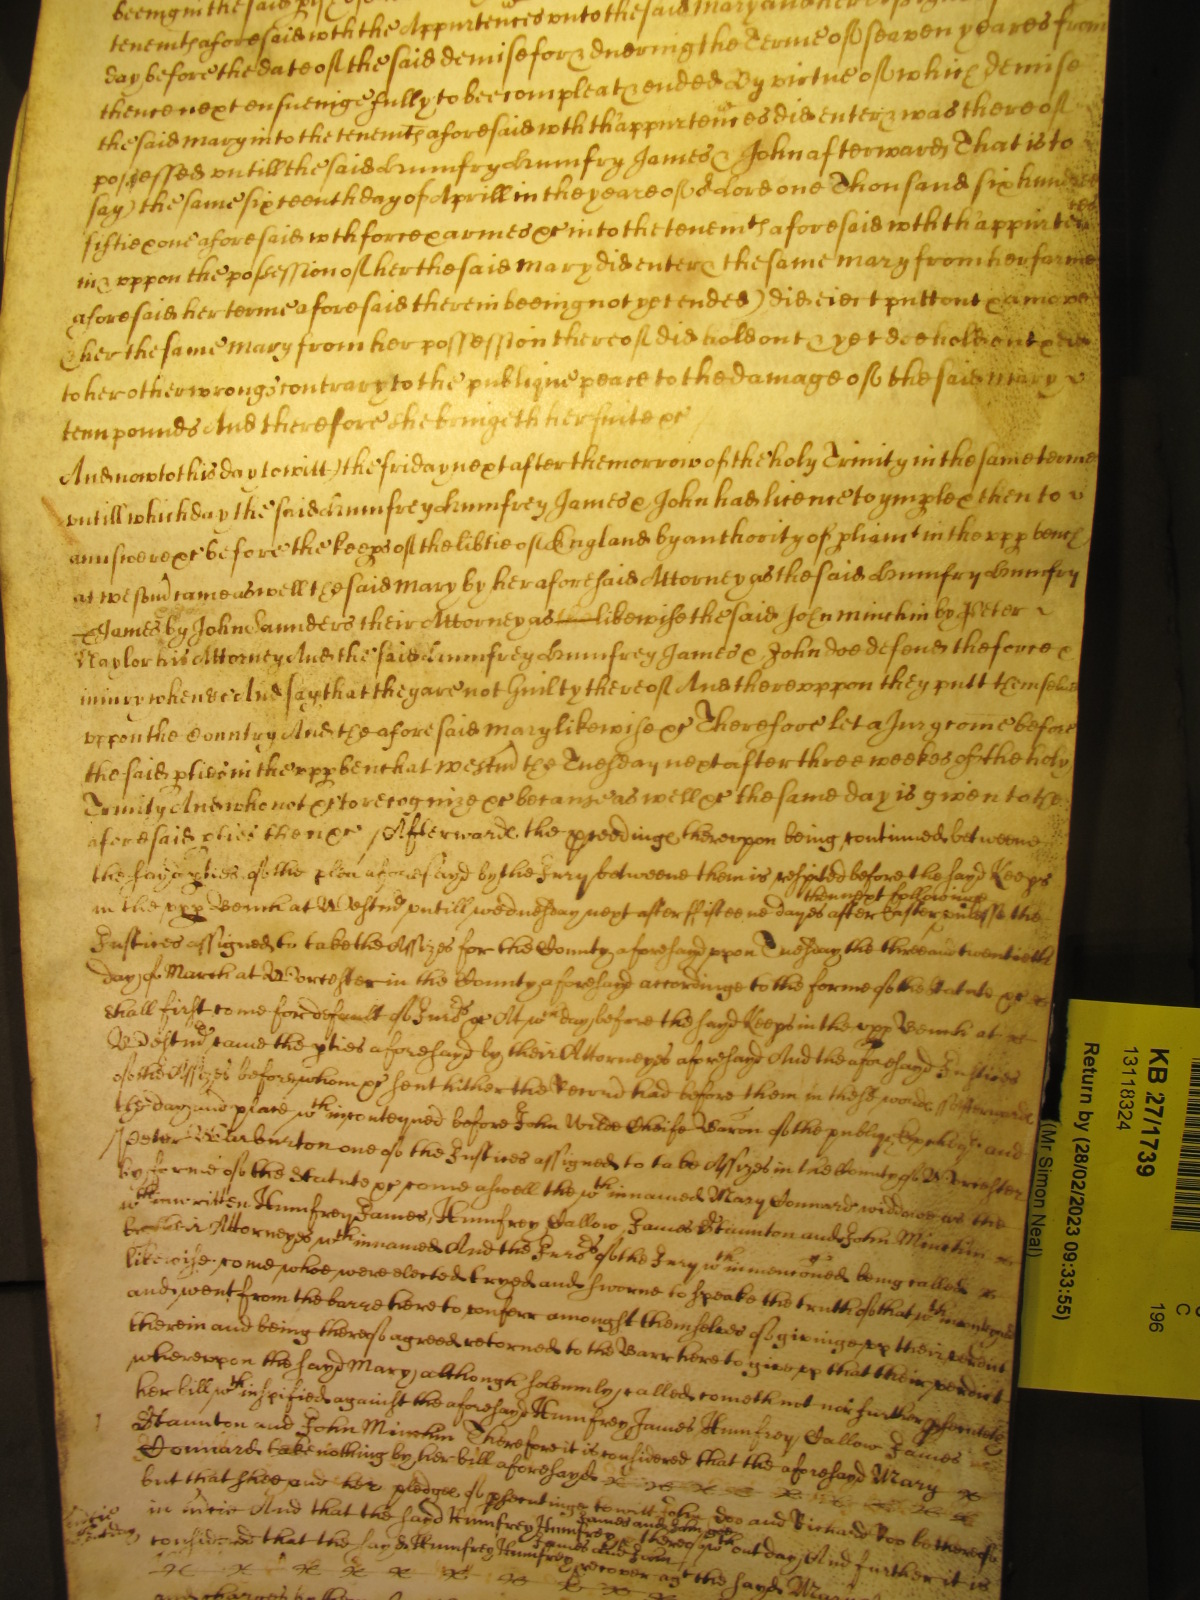 beeing in the said
tenemts aforesaid wth the Appurtences vnto the said Mary and her
day before the date of the said demise for & duering the Terme of seaven yeares from
thence next ensueinge fully to bee compleat & ended By virtue of which demise
the said mary into the tenemts aforesaid wth th'appurtences did enter & was thereof
possessed vntill the said Humfry Humfry James & John afterwards That is to
say) the same sixteenth day of Aprill in the yeare of or Lord one Thousand six hundred
fiftie & one aforesaid wth force & armes &c into the tenemts aforesaid wth th'appurten
in & vppon the possession of her the said Mary did enter & the same mary from her farme
aforesaid her terme aforesaid therein beeing not yet ended) did eiect putt out & amove
& her the same mary from her possession thereof did hold out & yet doe hold out &
to her other wrongs contrary to the publique peace to the damage of the said Mary
tenn pounds And therefore she bringeth her suite &c
And now to this day to witt) the friday next after the morrow of the holy Trinity in the same terme
vntill which day the said Humfrey Humfrey James & John had licence to ymple & then to
answere &c before the keeps of the libtie of England by authority of pliamt in the vpp bench
at westmr came as well the said Mary by her aforesaid Attorney as the said Humfry Humfry
& James by John Saunders their Attorney as likewise the said John minchin by Peter
Naylor his Attorney And the said Humfrey Humfrey James & John doe defend the force &
iniury when &c And say that they are not Guilty thereof And therevppon they putt themselves
vppon the Country And the aforesaid mary likewise &c Therefore let a Jury come before
the said pties in the vpp bench at westmr the Tuesday next after three weekes of the holy
Trinity And who not &c to recognize &c because as well &c the same day is given to the
aforesaid pties then &c / Afterwards the pceedinge therevpon being continued betweene
the sayd pties of the plea aforesayd by the Jury betweene them is respited before the sayd Keeps
in the vpp Bench at Westmr vntill wednesday next after fifteene dayes after Easter then next following vnlesse the
Justices assigned to take the Assizes for the County aforesayd vpon Tuesday the three and twentieth
day of March at Worcester in the County aforesayd accordinge to the forme of the Statute &c
shall first come for default of Jurors &c At wch day before the sayd Keeps in the vpp Bench at
Westmr came the pties aforesayd by their Attorneyes aforesayd And the aforesayd Justices
of the Assizes before whom &c sent hither the Record had before them in these words Afterwards
the day and place wthin conteyned before John Wilde Cheife Baron of the publiq Exchqr and
Peter Warburton one of the Justices assigned to take Assizes in the County of Worcester
by forme of the Statute &c come aswell the wthinnamed Mary Connard widdowe as the
wthinwritten Humfrey James, Humfrey Callow James Staunton and John Minchin
by their Attorneyes wthinnamed And the Jurors of the Jury wthinmenconed being called
likewise come whoe were elected tryed and sworne to speake the truth of that wthinconteyned
and went from the barre here to conferr amongst themselves of givinge vp their verdict
therein and being thereof agreed retorned to the Barr here to give vp that their verdict
wherevpon the sayd Mary although solemnly called cometh not nor further psecuteth
her bill wthinspified against the aforesayd Humfrey James Humfrey Callow James
Staunton and John Minchin Therefore it is considered that the aforesayd Mary
Connard take nothing by her bill aforesayd
but that shee and her pledges of psecutinge to witt John Doo and Richard Roo be thereof
in mcie And that the sayd Humfrey Humfrey James and John goe thereof wthout day And further it is
considered that the sayd Humfrey Humfrey James and John recover agt the sayd Mary
KB 27/1739
13118324
Return by (28/02/2023 09:33:55)
(Mr Simon Neal)
196
C